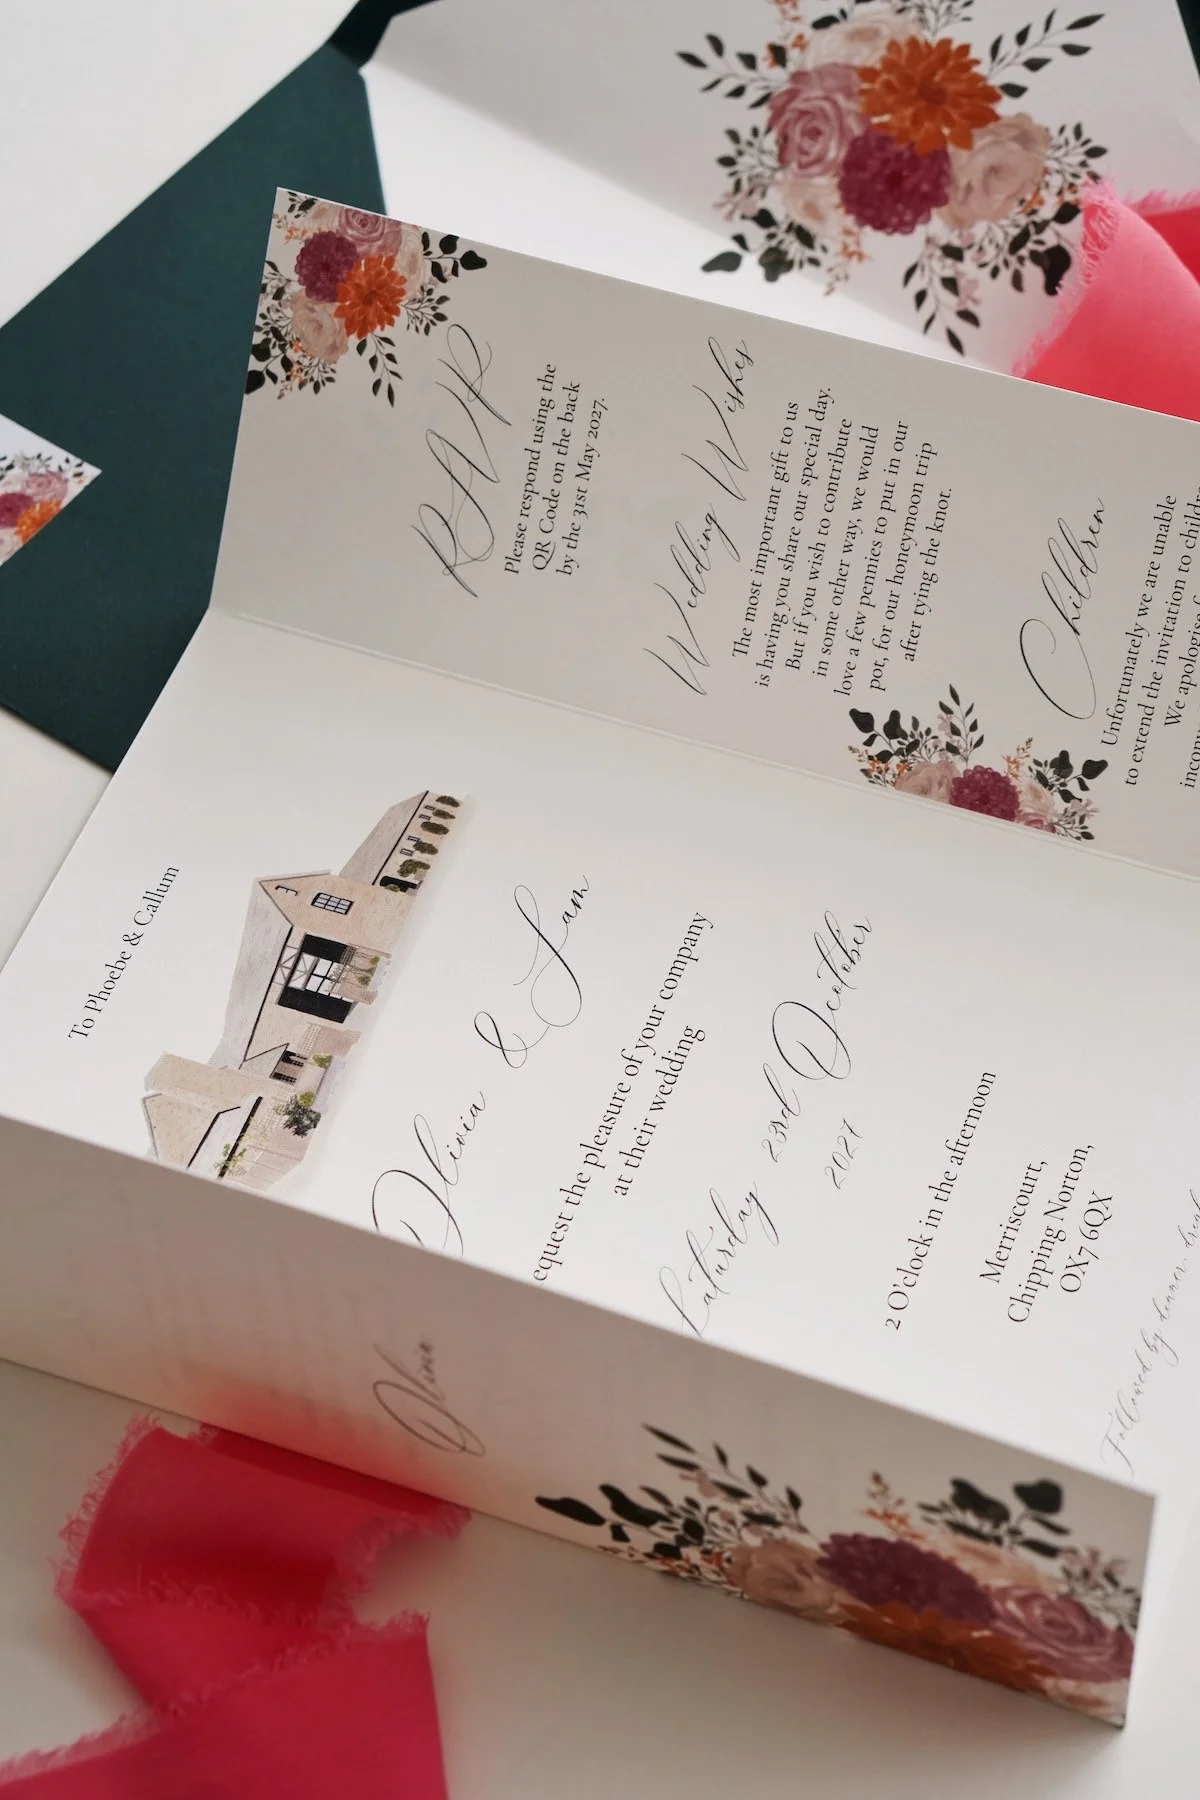 RSVP
Please respond using the
QR Code on the back
by the 31st May 2027.
Wedding Wishes
The most important gift to us
is having you share our special day.
But if you wish to contribute
in some other way, we would
love a few pennies to put in our
pot, for our honeymoon trip
after tying the knot.
Children
Unfortunately we are unable
to extend the invitation to
We apologise
To Phoebe & Callum
Olivia & Sam
equest the pleasure of your company
at their wedding
Saturday 23rd October
2027
2 O'clock in the afternoon
Merriscourt,
Chipping Norton,
OX7 6QX
Followed by dinner,
Olivia